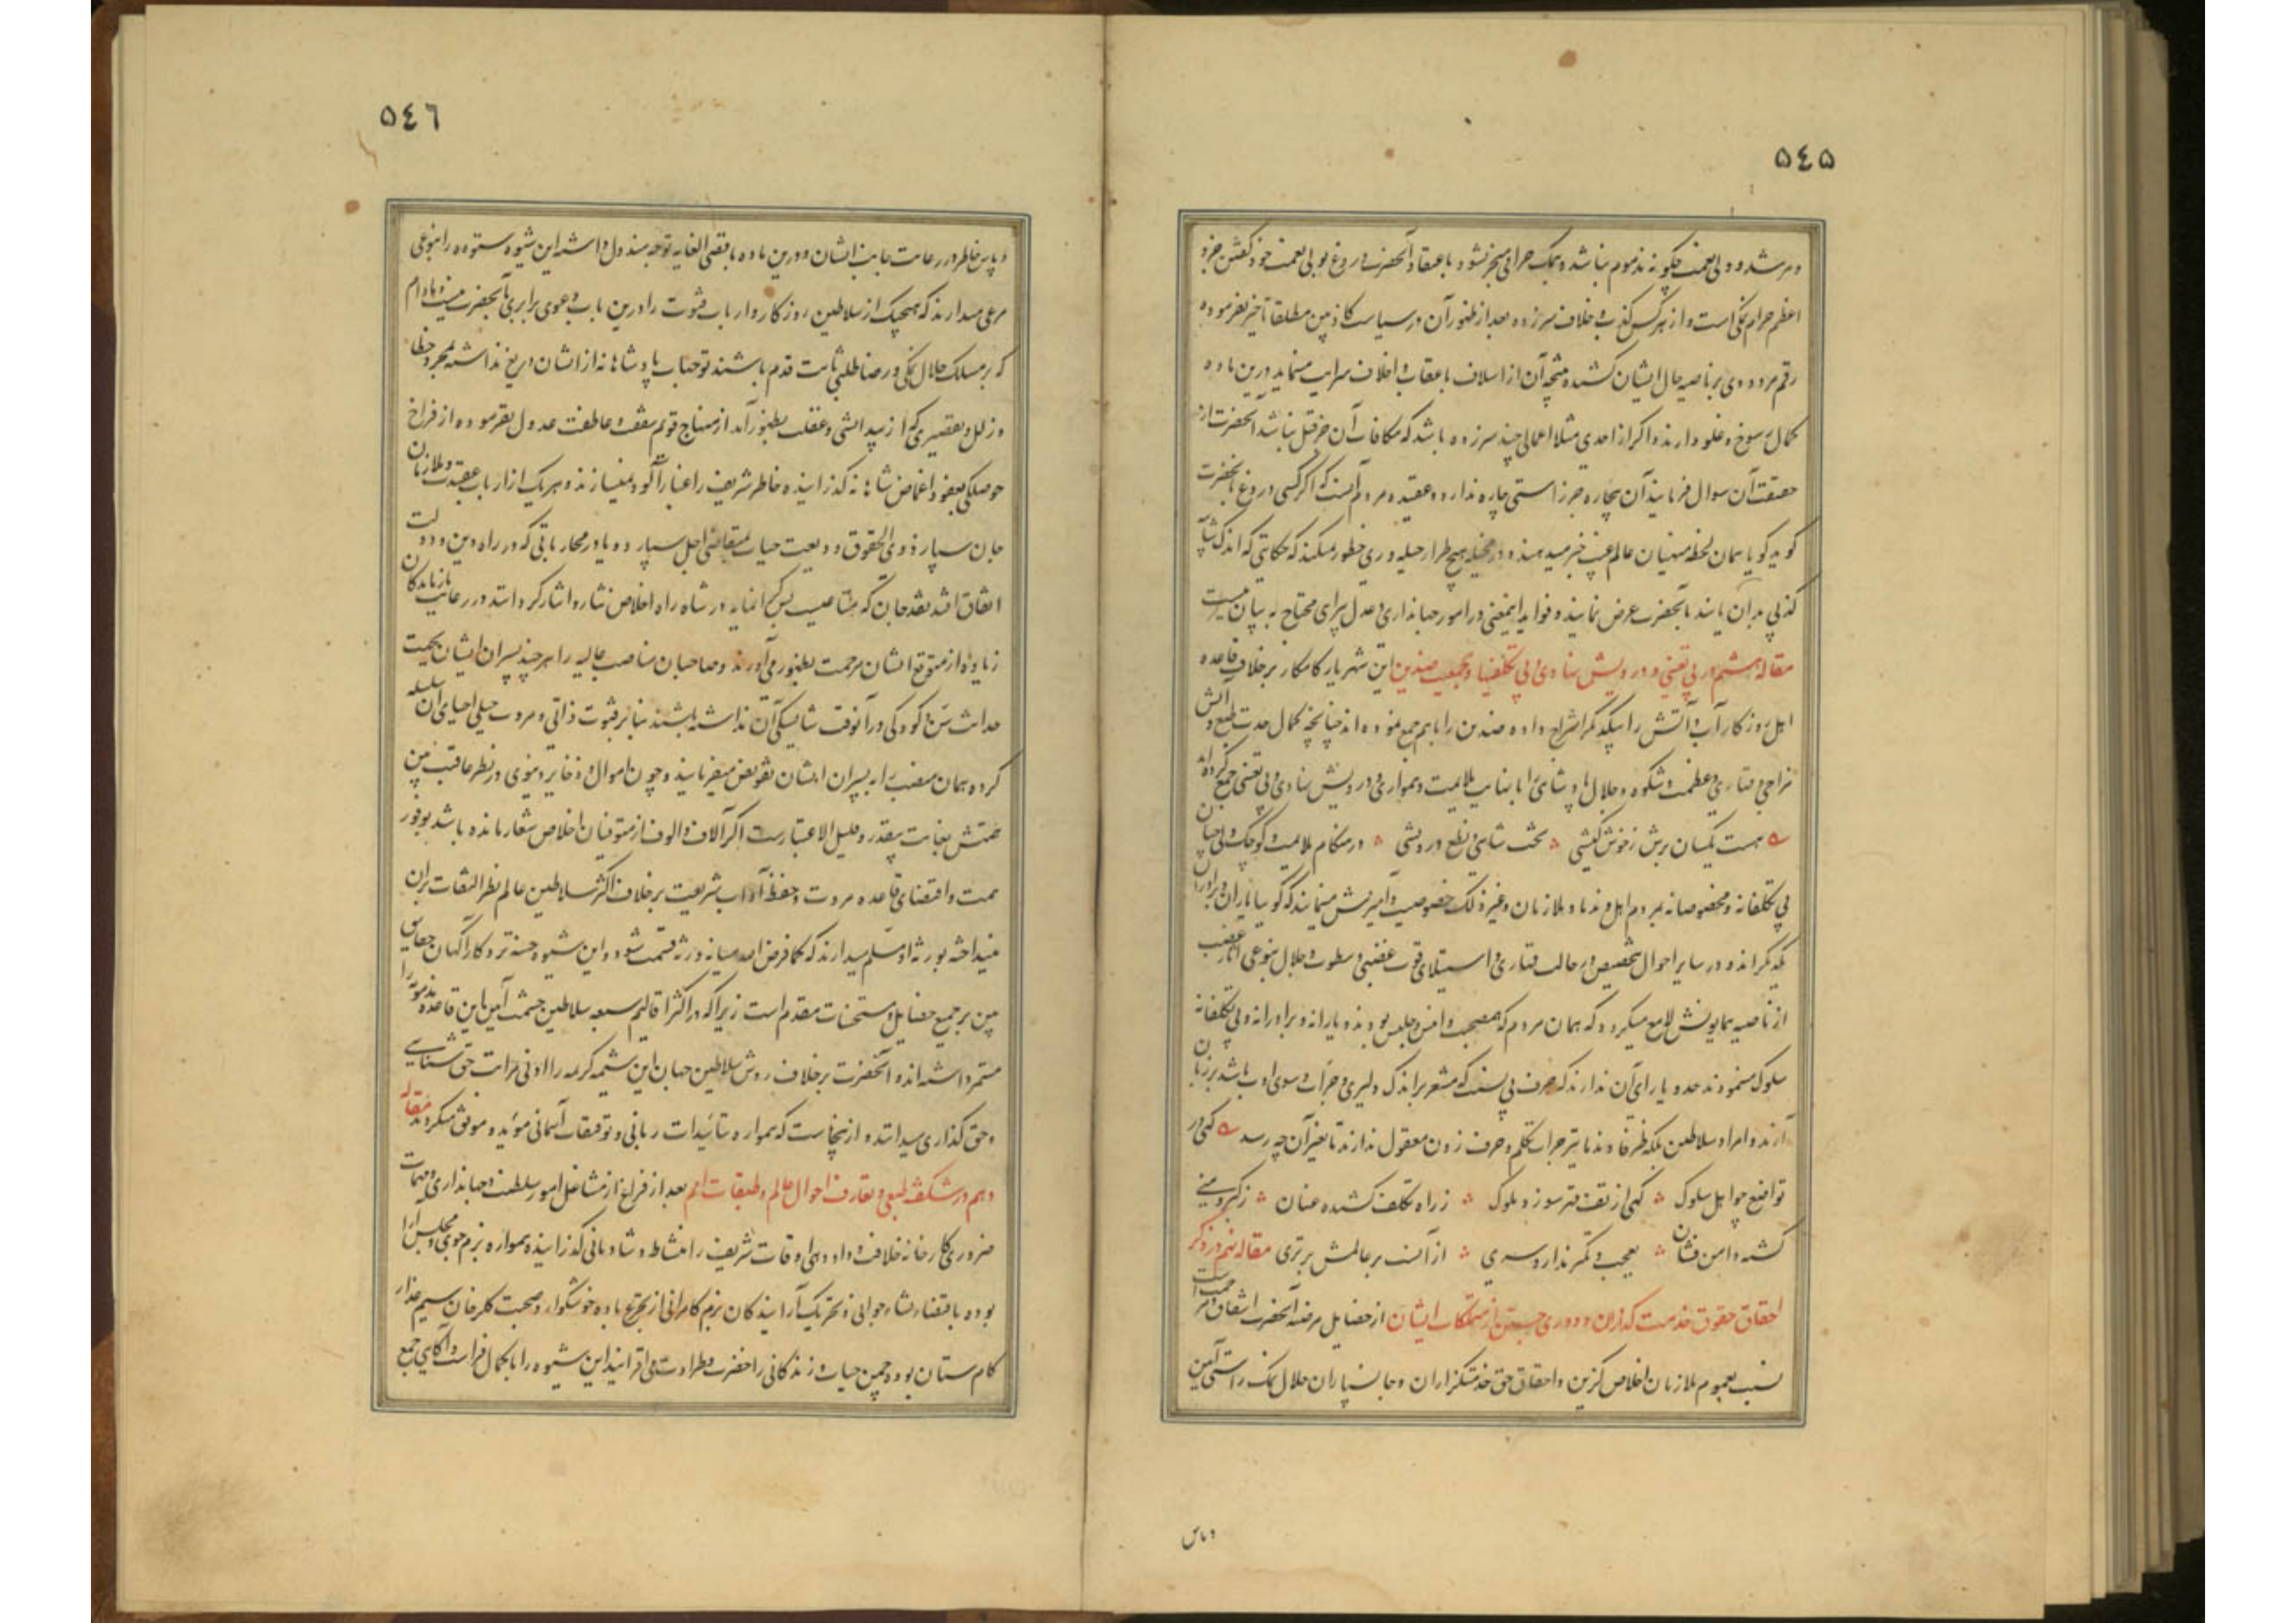 ٥٤٥
و مرشد و ولی نعمت چگونه مذموم نباشد و نمک حرامی منجر نشود و باعتقاد آنحضرت دروغ بولی نعمت خود گفتن جزو
اعظم حرام نمکی است و از هر کس کذب و خلاف سرزده بعد از ظهور آن در سیاست کاذبین مطلقا تأخیر نفرموده
رقم مردودی بر ناصیه حال ایشان کشیده نتیجه آن از اسلاف باعقاب و اخلاف سرایت مینماید درین ماده
کمال رسوخ و غلو دارند و اگر از احدی مثلا اعمالی چند سرزده باشد که مکافات آن جز قتل نباشد آنحضرت از
حقیقت آن سوال فرمایند آن بیچاره جز راستی چاره ندارد و عقیده مردم آنست که اگر کسی دروغ بآنحضرت
گوید گویا همان لحظه منهیان عالم غیب خبر میدهند و در مخیله هیچ طرار حیله وری خطور نمیکند که حکایتی که اندک شایبه
کذبی بدان یابند بآنحضرت عرض نمایند و فواید اینمعنی در امور جهانداری و عدل پیرای محتاج به بیان نیست
مقاله هشتم در بی تعینی و درویش نهادی و بی تکلفیها و جمعیت ضدین این شهریار کامکار بر خلاف قاعده
اهل روزگار آب و آتش را بیکدیگر امتزاج داده ضدین را باهم جمع نموده اند چنانچه کمال حدت طبع و آتش
مزاجی و قهاری و عظمت و شکوه و جلال پادشاهی را با نهایت ملایمت و همواری و درویش نهادی و بی تعینی جمع کرده اند
هست یکسان برش ز خوش کیشی تخت شاهی و نطع درویشی در هنگام ملایمت و کوچک دلی چنان
بی تکلفانه و مخصوصانه بمردم اهل و ندما و ملازمان و غیر ذلک خصوصیت و آمیزش مینمایند که گویا یاران و برادران
یکدیگرند و در سایر احوال بتخصیص در حالت قهاری و استیلای قوت غضبی و سطوت و جلال بنوعی آثار غضب
از ناصیه همایونش لامع میگردد که همان مردم که همصحبت و انیس و جلیس بودند و یارانه و برادرانه و بی تکلفانه
سلوک مینمودند حد و یارای آن ندارند که حرف بی نسبت که مشعر بر اندک دلیری و جرأت و سوء ادب باشد بر زبان
آرند و امرا و سلاطین بلکه ظرفا و ندما نیز جرأت تکلم و حرف زدن معقول ندارند تا بغیر آن چه رسد گهی در
تواضع چو اهل سلوک گهی از تف قهر سوزد ملوک ز راه تکلف کشیده عنان ز کبر و منی
گشته دامن فشان بعجب و تکبر ندارد سری از آنست بر عالمش برتری مقاله نهم در ذکر
احقاق حقوق خدمت گذاران و دوری جستن از متملکات ایشان از خصایل مرضیه آنحضرت اشفاق و مرحمت است
نسبت بعموم ملازمان اخلاص گزین و احقاق حق خدمتگزاران و جانسپاران حلال نمک راستی آیین
و پاس
٥٤٦
و پاس خاطر و رعایت جانب ایشان و درین ماده باقصی الغایه توجه مبذول داشته این شیوه ستوده را بنوعی
مرعی میدارند که هیچیک از سلاطین روزگار و ارباب فتوت را درین باب دعوی برابری بآنحضرت نیست و مادام
که بر مسلک حلال نمکی و رضا طلبی ثابت قدم باشند توجهات پادشاهانه از ایشان دریغ نداشته بمجرد خطا
و زلل و تقصیری که از بیدانشی و غفلت بظهور آمد از منهاج قویم شفقت و عاطفت عدول نفرموده از فراخ
حوصلگی بعفو و اغماض شاهانه گذرانیده خاطر شریف را غبار آلود نمیسازند و هر یک از ارباب عقیدت و ملازمان
جان سپار ذوی الحقوق ودیعت حیات بمتقاضی اجل سپارد و یا در محارباتی که در راه دین و دولت
اتفاق افتد نقد جان که متاعیست بس گرانمایه در شاه راه اخلاص نثار و ایثار کرده باشند در رعایت بازماندگان
زیاده از متوقع ایشان مرحمت بظهور می آورند و صاحبان مناصب عالیه را هر چند پسران ایشان بجهت
حداثت سن و کودکی در آنوقت شایستگی آن نداشته باشند بنا بر فتوت ذاتی و مروت جبلی احیای آن سلسله
کرده همان منصب را به پسران ایشان تفویض میفرمایند و چون اموال و ذخایر دنیوی در نظر عاقبت بین
همتش بغایت بیقدر و قلیل الاعتبار است اگر آلاف و الوف از متوفیان اخلاص شعار مانده باشد بوفور
همت و اقتضای قاعده مروت و حفظ آداب شریعت بر خلاف اکثر سلاطین عالم نظر التفات بر آن
نینداخته بورثه او مسلم میدارند که کما فرض الله میانه ورثه قسمت شود و این شیوه حسنه نزد کار آگهان حقایق
بین بر جمیع خصایل و مستحسنات مقدم است زیرا که در اکثر اقالیم سبعه سلاطین حشمت آیین این قاعده مذمومه را
مستمر داشته اند و آنحضرت بر خلاف روش سلاطین جهان این شیمه کریمه را ادنی مراتب حق شناسی
و حق گذاری میدانند و ازینجاست که همواره بتأئیدات ربانی و توفیقات آسمانی مؤید و موفق میگردند مقاله
دهم در شکفته طبعی و تعارف احوال عالم و طبقات امم بعد از فراغ از مشاغل امور سلطنت و جهانداری و مهمات
ضروری کارخانه خلافت و داد دهی اوقات شریف را بنشاط و شادمانی گذرانیده همواره بزم جوی و مجلس آرا
بوده باقتضاء نشاء جوانی و تحریک آرایندگان بزم کامرانی از تجرع باده خوشگوار و صحبت گلرخان سیم عذار
کام ستان بوده چمن حیات و زندگانی را خضرت و طراوت می افزایند این شیوه را با کمال فراست و آگاهی جمع